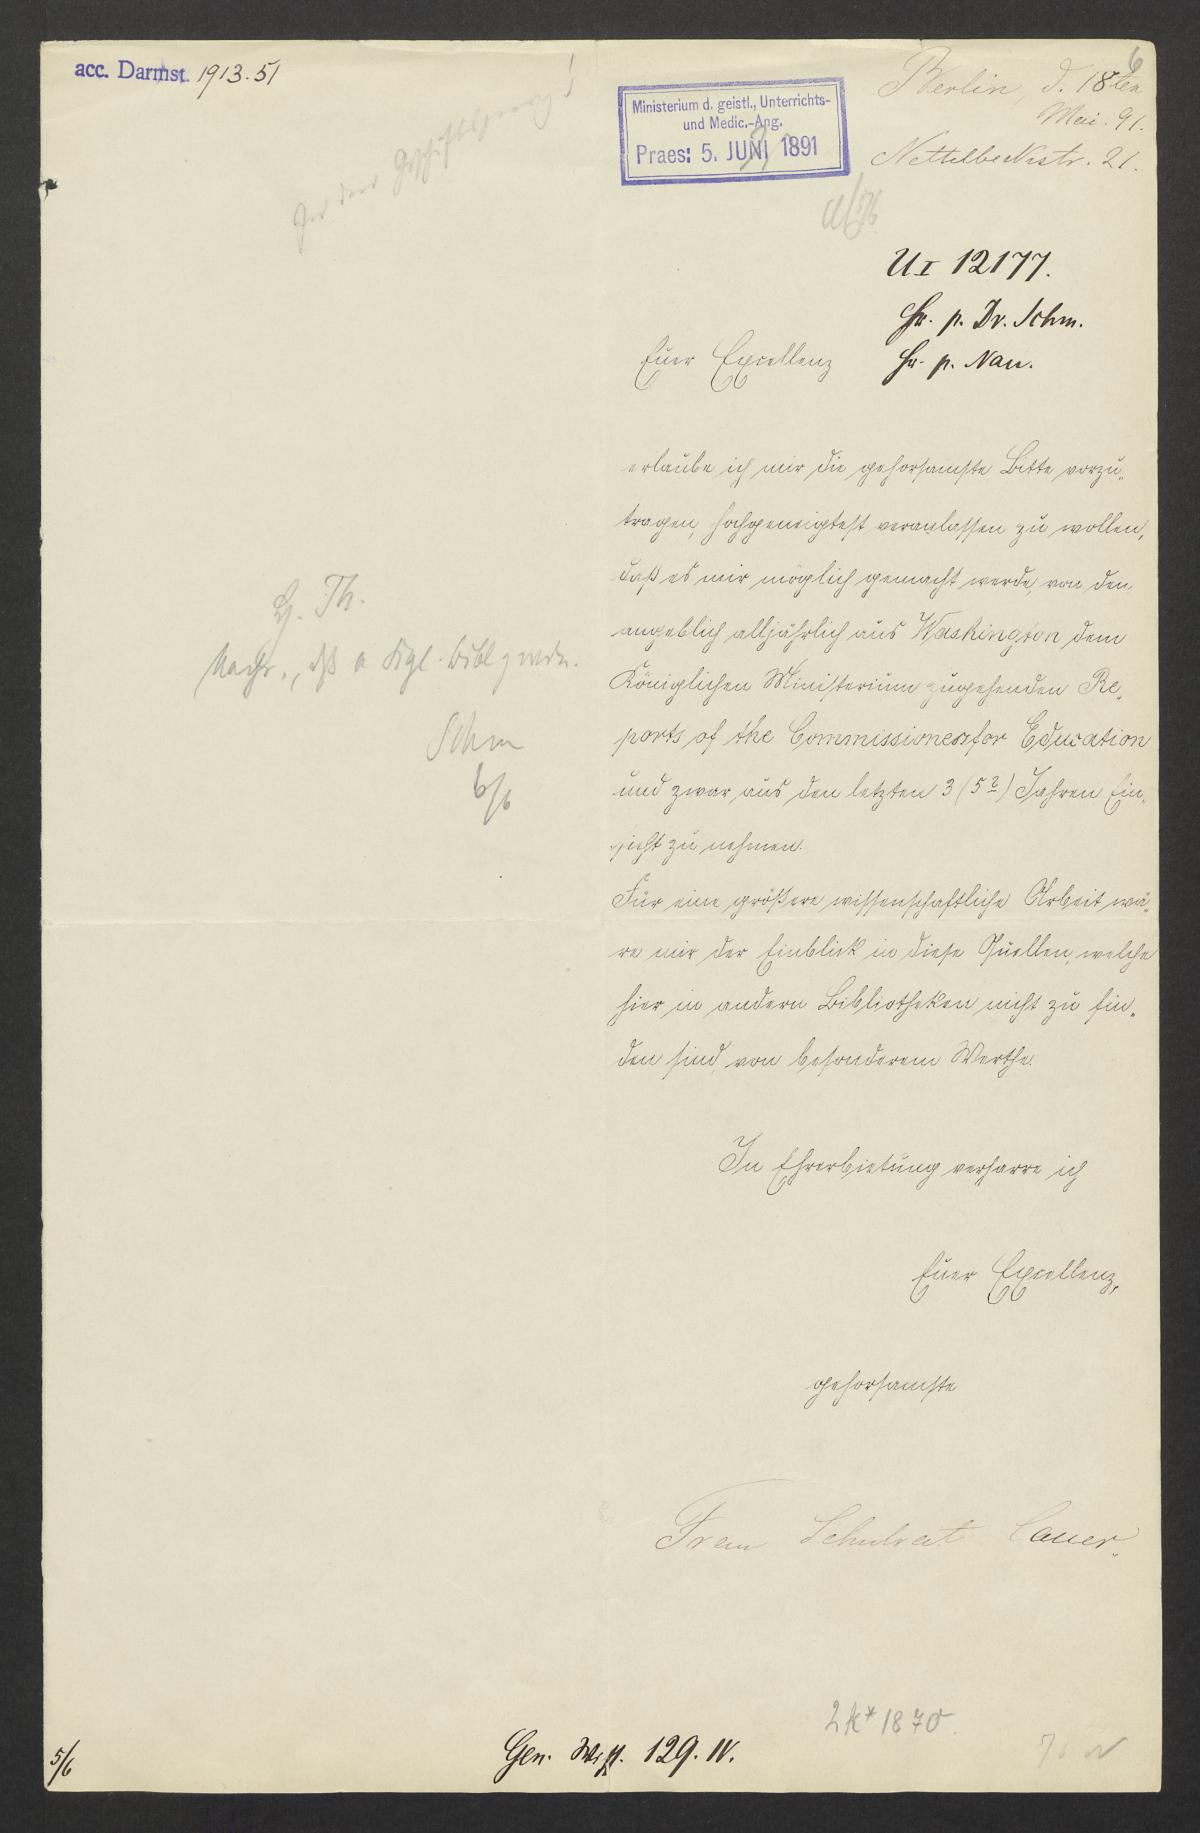 acc. Darmst. 1913.51
6
Berlin, d. 18ten
Mai. 91.
Nettelbeckstr. 21.
Ministerium d. geistl., Unterrichts-
und Medic.-Ang.
Praes: 5. JUNI 1891
UI 12177.
Hr. p. Dr. Schm.
Hr. p. Nau.
Euer Excellenz
erlaube ich mir die gehorsamste Bitte vorzu-
tragen, hochgeneigtest veranlassen zu wollen,
daß es mir möglich gemacht werde, von den
angeblich alljährlich aus Washington dem
Königlichen Ministerium zugehenden Re-
ports of the Commissioners for Education
und zwar aus den letzten 3 (5?) Jahren Ein-
sicht zu nehmen.
Für eine größere wissenschaftliche Arbeit wä-
re mir der Einblick in diese Quellen, welche
hier in andern Bibliotheken nicht zu fin-
den sind, von besonderem Werthe.
In Ehrerbietung verharre ich
Euer Excellenz,
gehorsamste
Frau Schulrat Cauer.
Schm
6/6
2k*1870
5/6
Gen. 129. IV.